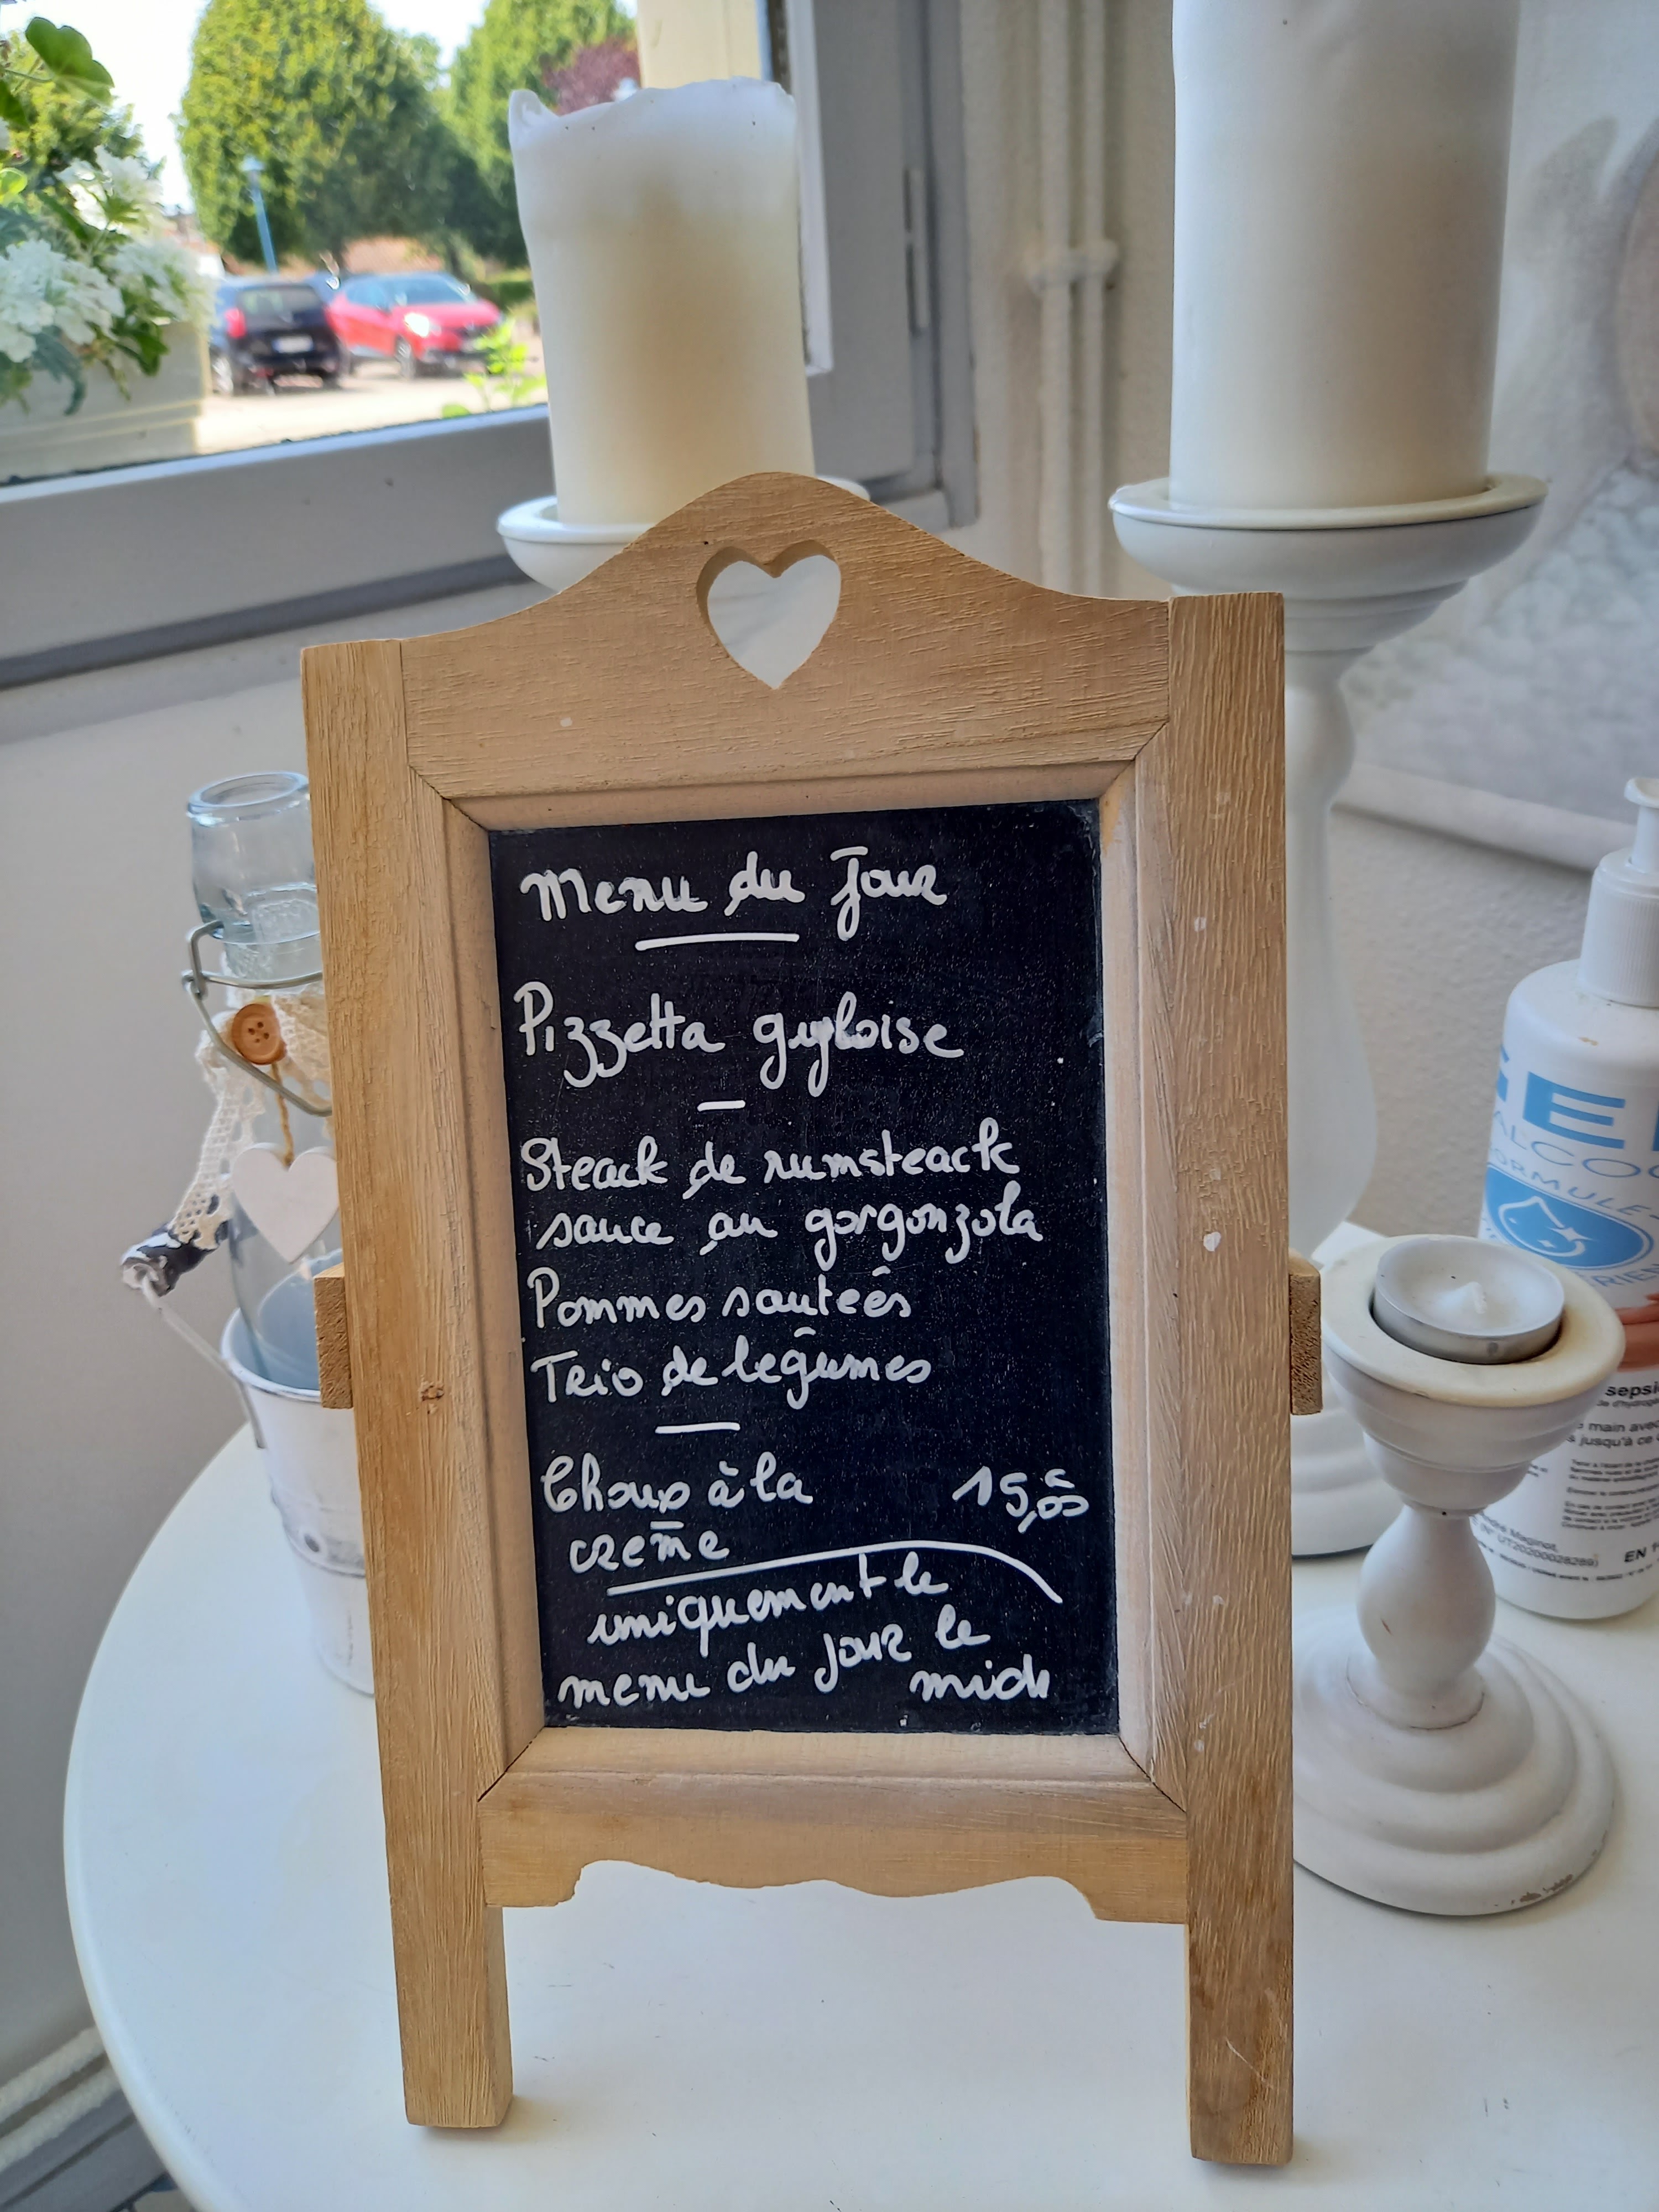 Menu du Jour
Pizzetta guyloise
Steack de rumsteack
sauce au gorgonzola
Pommes sautées
Trio de légumes
Choux à la
crème
15,00
uniquement le
menu du jour le
midi
GEL
ALCOO
FORMULE
sepsi
main avec
jusqu'à ce
EN 1